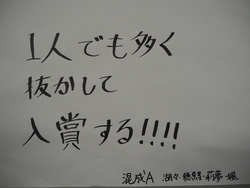 1人でも多く
抜かして
入賞する!!!!
混成A